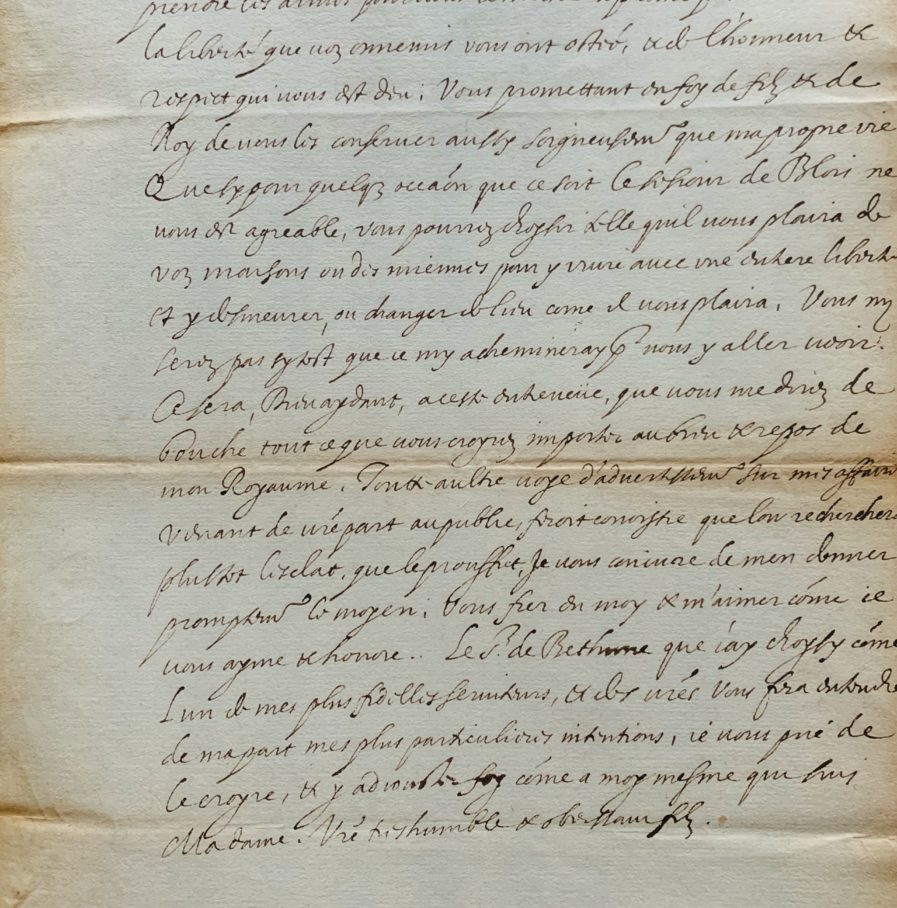 prendre les armes pour
la liberté que voz ennemis vous ont ostée, & de l'honneur &
respect qui vous est deu; Vous promettant en foy de filz & de
Roy de vous les conserver aussy soigneusemt que ma propre vie
Que sy pour quelqz occaõn que ce soit le seiour de Blois ne
vous est agreable, vous pourrez choysir telle quil vous plaira de
voz maisons ou des miennes pour y vivre avec une entiere liberte
Et y desmeurer, ou changer de lieu cõme il vous plaira. Vous ny
serez pas sy tost que ie my achemineray pr vous y aller veoir.
Ce sera, Dieu aydant, a ceste entreveüe, que vous me direz de
bouche tout ce que vous croyrez importer au bien & repos de
mon Royaume. Toute aultre voye d'advertissemt sur mes affaires
venant de vr̃e part au public, feroit conoistre que lon rechercher
plustost l'esclat, que le prouffit, Je vous coniure de men donner
promptemt le moyen; Vous fier en moy & m'aimer cõme ie
vous ayme & honore.. Le Sr. de Bethune que i'ay choysy cõme
l'un de mes plus fidelles serviteurs, & des vr̃es vous fera entendre
de ma part mes plus particulieres intentions, ie vous prie de
le croyre, & y adiouster foy cõme a moy mesme qui suis
Madame. Vr̃e tres humble & obeissant filz.